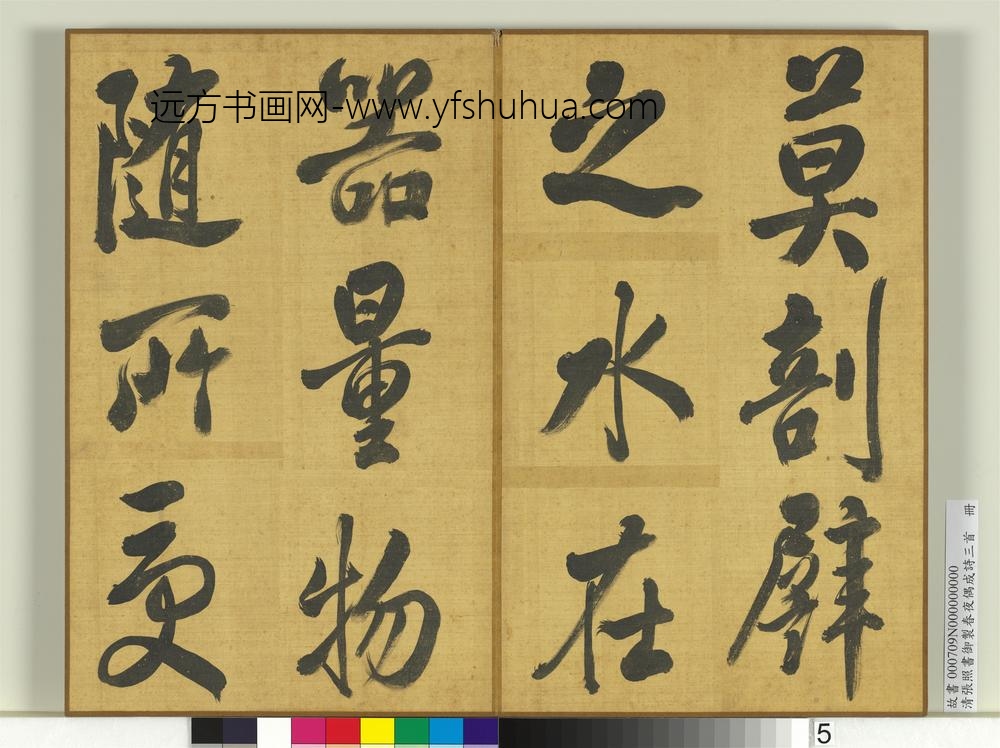 莫剖辟
之水在
器量物
隨所受
远方书画网-www.yfshuhua.com
故書 000709N000000000
清張照書御製春夜偶成詩三首 冊
5